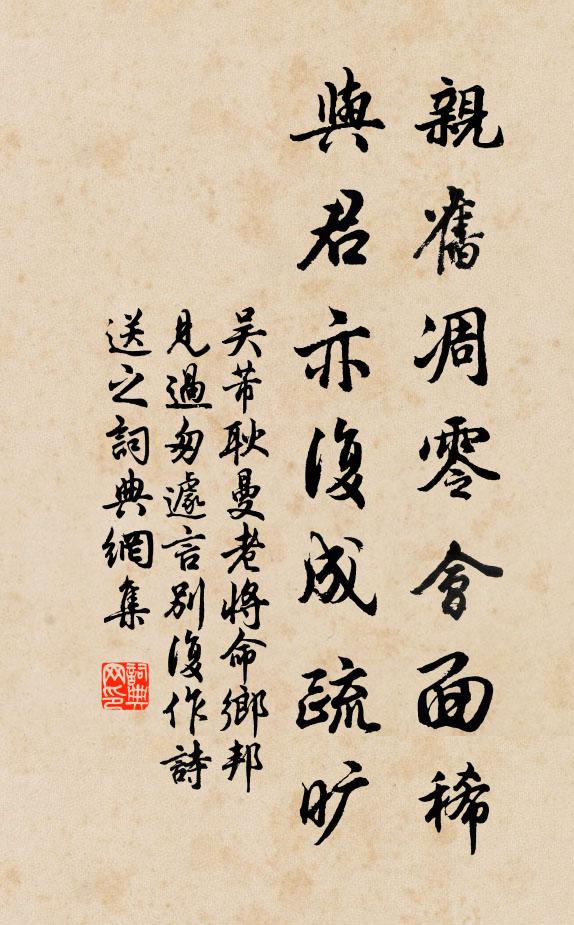 親舊凋零會面稀
與君亦復成疏旷
吴芾耿曼老将命鄉邦
見過匆遽言别復作詩
送之詞典網集
詞典网印